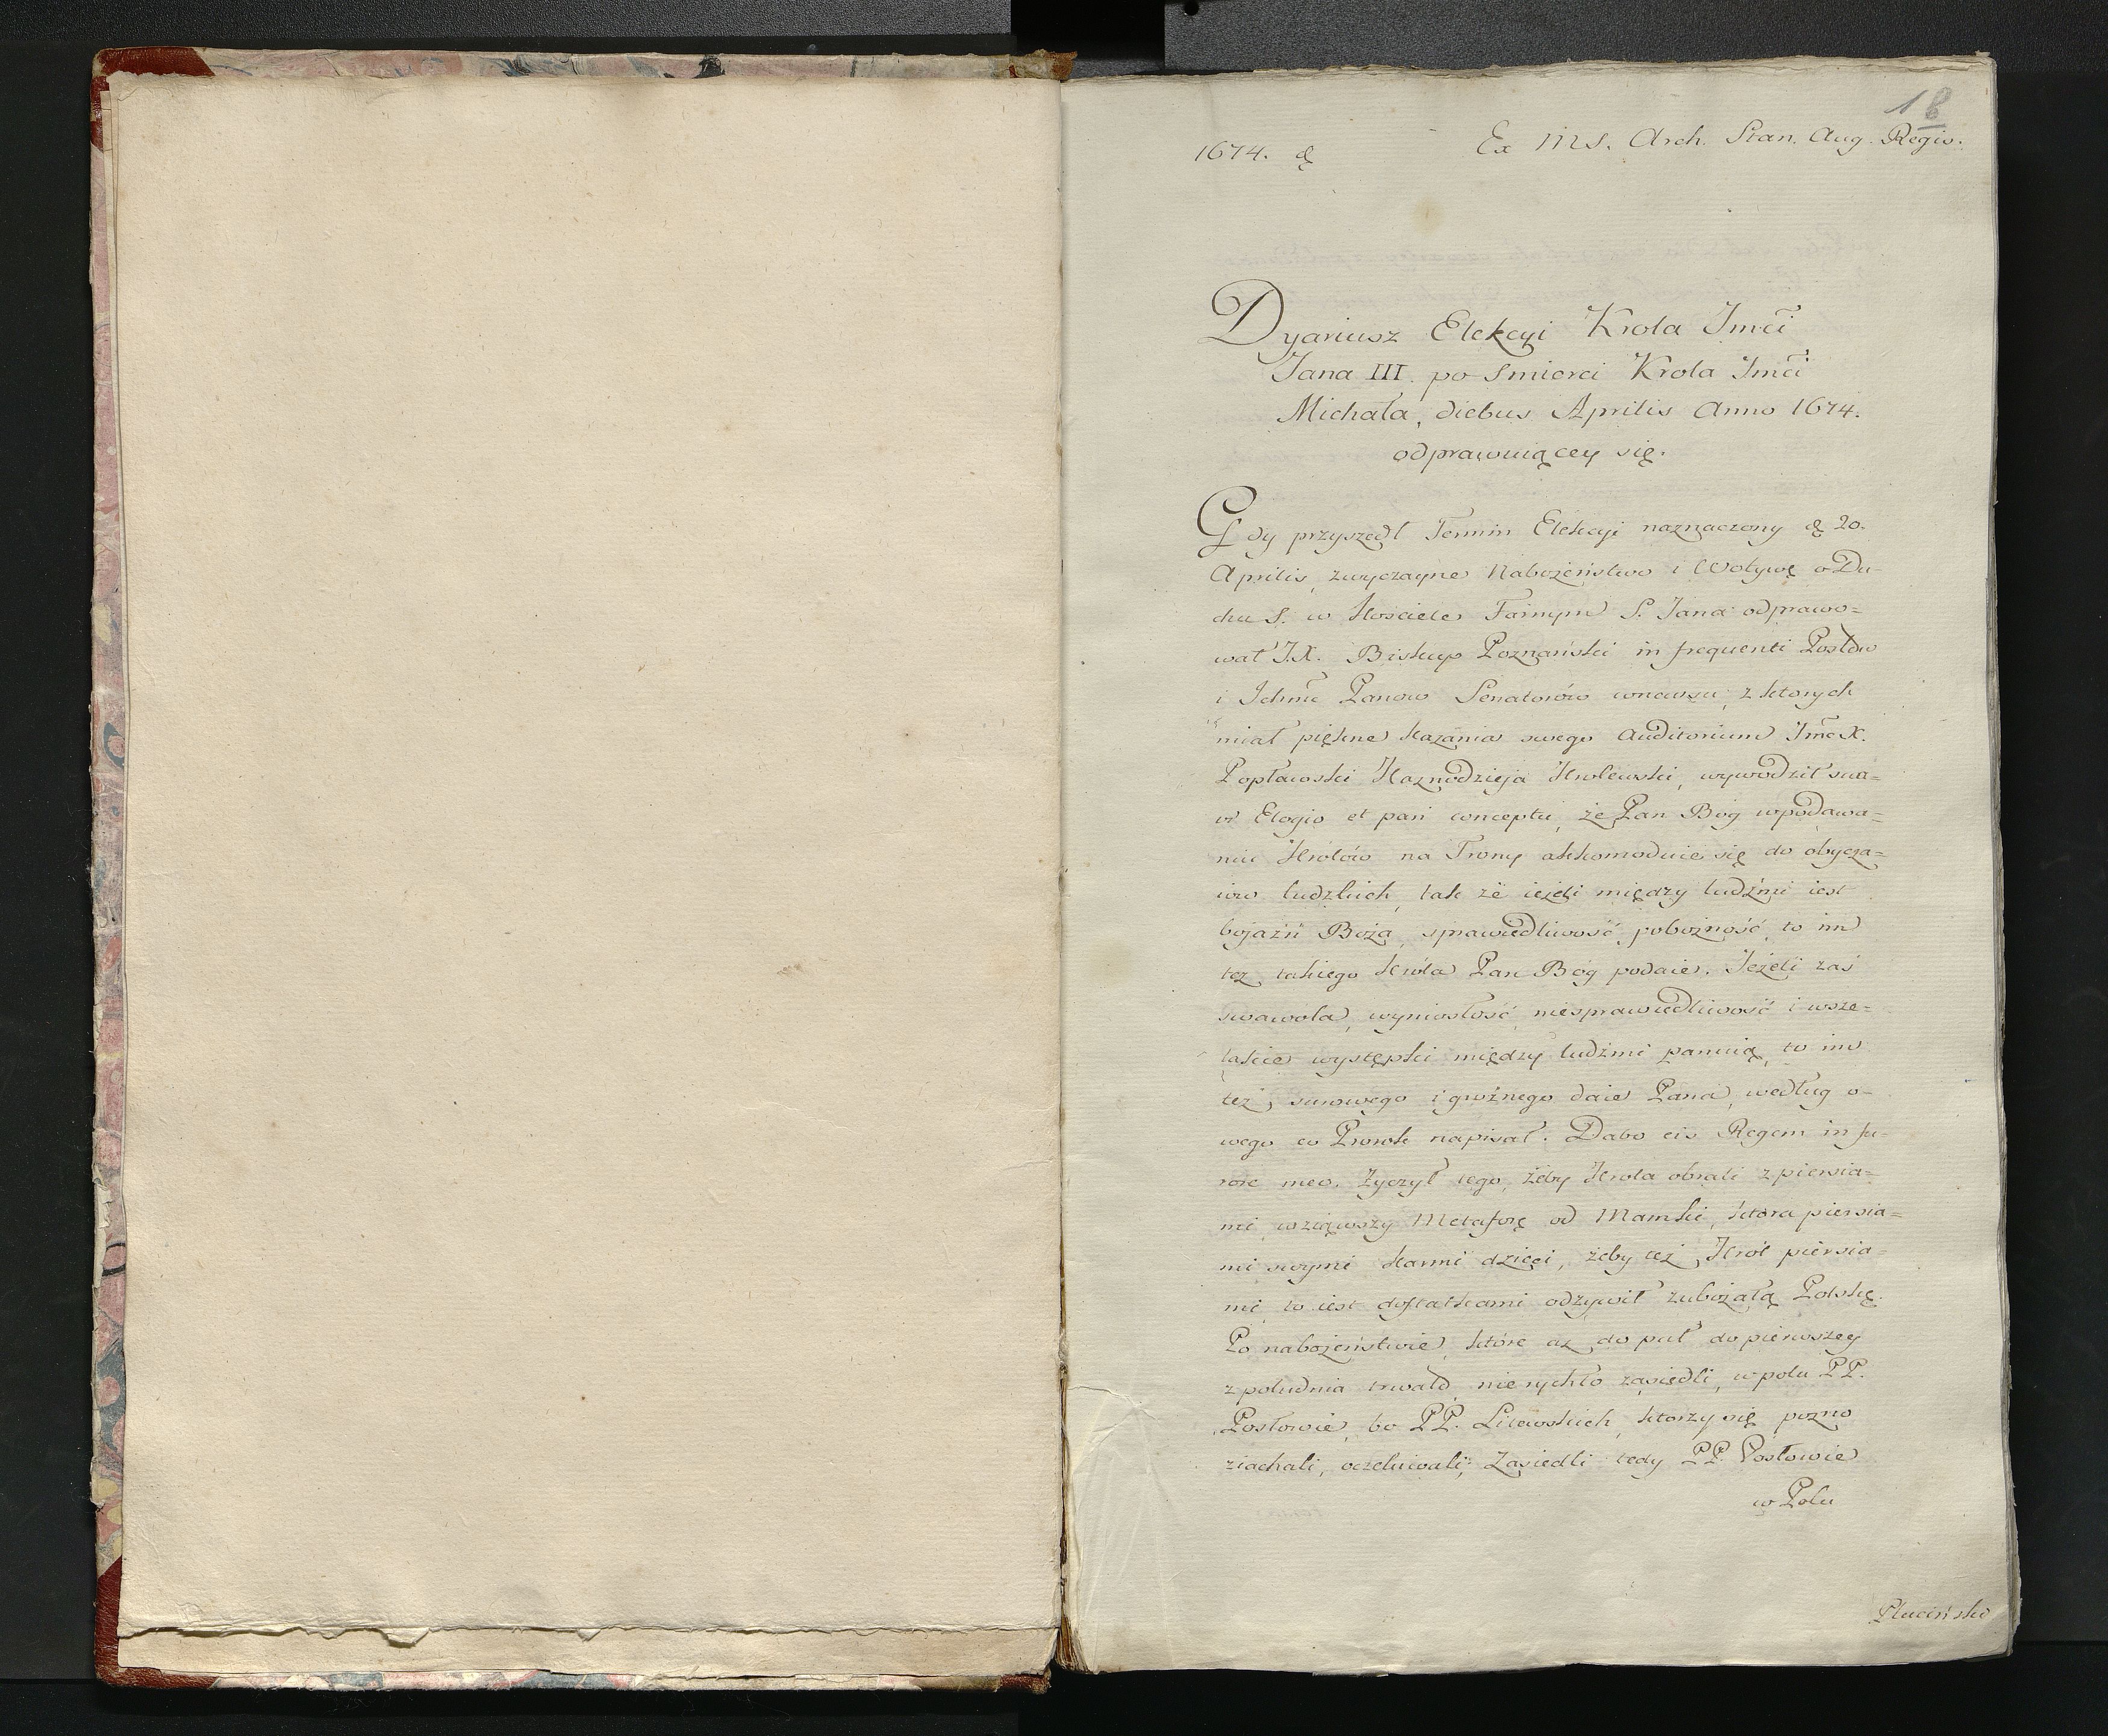 1 b
1674. d
Ex MS. Arch. Stan. Aug. Regis.
Dyariusz Elekcyi Krola Jmci
Jana III. po Smierci Krola Jmci
Michała, diebus Aprilis Anno 1674.
odprawuiącey się.
Gdy przyszedł Termin Elekcyi naznaczony d 20.
Aprilis, zwyczayne Nabożeństwo i Wotywę o Du-
chu S. w Kosciele Farnym S. Jana odprawo=
wał J.X. Biskup Poznański in frequenti Posłów
i Ichmć Panow Senatorów concursu, z ktorych
miał piękne kazania swego Auditorium JmcX.
Popławski Kaznodzieja Krolewski, wywodził sua=
vi Elogio et pari conceptu, że Pan Bóg w podawa=
niu Królów na Trony akkomoduie się do obycza=
iów ludzkich, tak że ieżeli między ludźmi iest
bojaźń Boża, sprawiedliwość, pobożność, to im
też takiego Króla Pan Bóg podaie. Jeżeli zaś
swawola, wyniosłość, niesprawiedliwość i wsze=
lakie występki między ludźmi panuią, to im
też surowego i groźnego daie Pana, według o-
wego co Prorok napisał. Dabo eis Regem in fu-
rore meo. Życzył tego, żeby Krola obrali z piersia=
mi, wziąwszy Metaforę od Mamki, ktora piersia=
mi swymi karmi dzieci, żeby też Król piersia=
mi, to iest dostatkami odżywił zubożałą Polskę.
Po nabożeństwie, które aż do puł do pierwszey
z południa trwało, nierychło zasiedli, w polu PP.
Posłowie, bo PP. Litewskich, ktorzy się pozno
ziachali, oczekiwali; Zasiedli tedy PP. Posłowie
w Polu
Pluciński